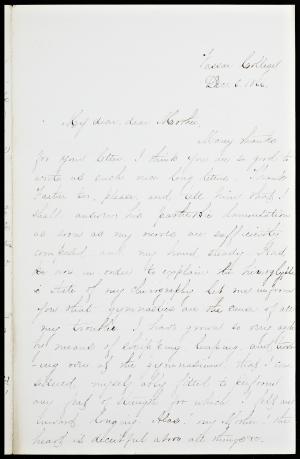 Vassar College
Dec. 5, 186
My dear, dear Mother,
Many thanks
for your letter. I think you are so good to
write us such nice long letters. Thank
Father too, please, and tell him that I
shall answer his pathetic lamentation
as soon as my nerves are sufficiently
composed and my hand steady. And
now in order to explain the hieroglyphic
state of my chirography let me inform
you that gymnastics are the cause of all
my trouble. I have grown so very
by means of leaping, and
over of the gymnasium, that I con
sidered myself ably fitted to perform
any feat of strength for which I felt any
inward longing. Alas! my Mother! the
heart is deceitful above all things &c.